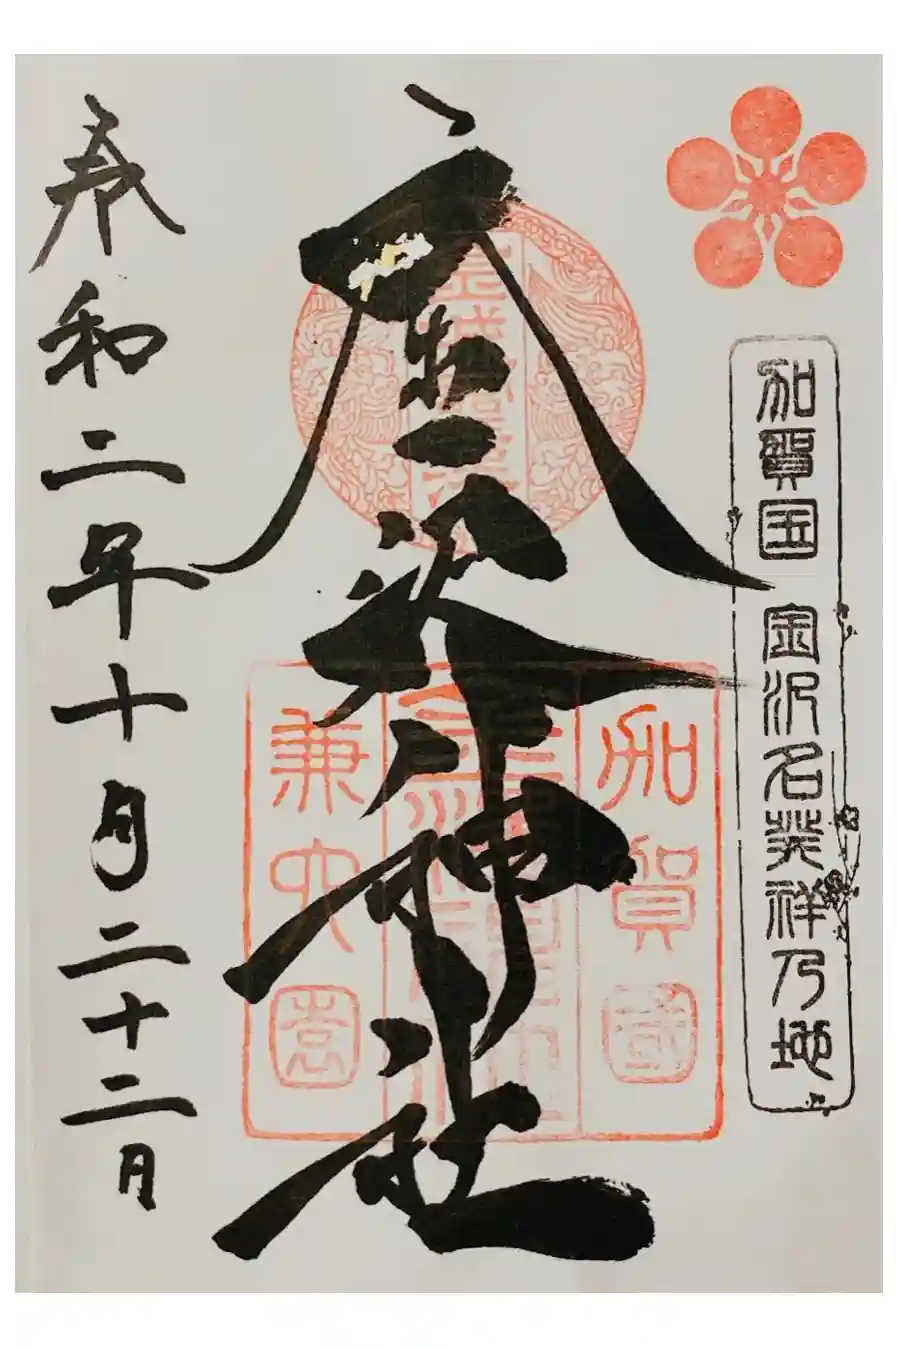 加賀国 金沢名発祥乃地
加賀國
金澤神社
兼六園
令和二年十月二十二日